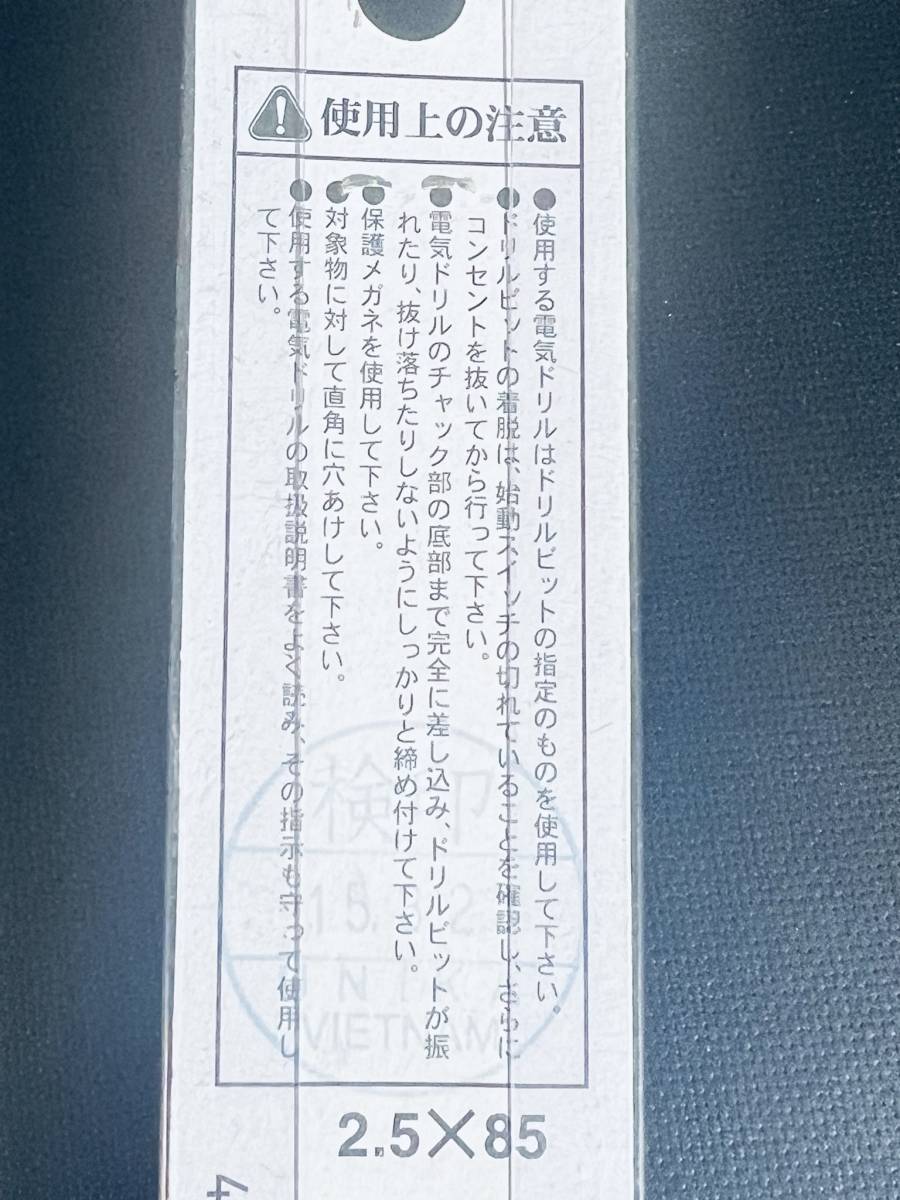 使用上の注意
●使用する電気ドリルはドリルビットの指定のものを使用して下さい。
●ドリルビットの着脱は、始動スイッチの切れていることを確認し、さらに
コンセントを抜いてから行って下さい。
●電気ドリルのチャック部の底部まで完全に差し込み、ドリルビットが振
れたり、抜け落ちたりしないようにしっかりと締め付けて下さい。
●保護メガネを使用して下さい。
●対象物に対して直角に穴あけして下さい。
●使用する電気ドリルの取扱説明書をよく読み、その指示も守って使用し
て下さい。
検印
VIETNAM
2.5×85
4